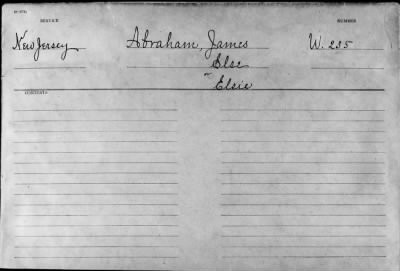 SERVICE NUMBER
New Jersey Abraham, James W. 235
Else
or Elsie
CONTENTS